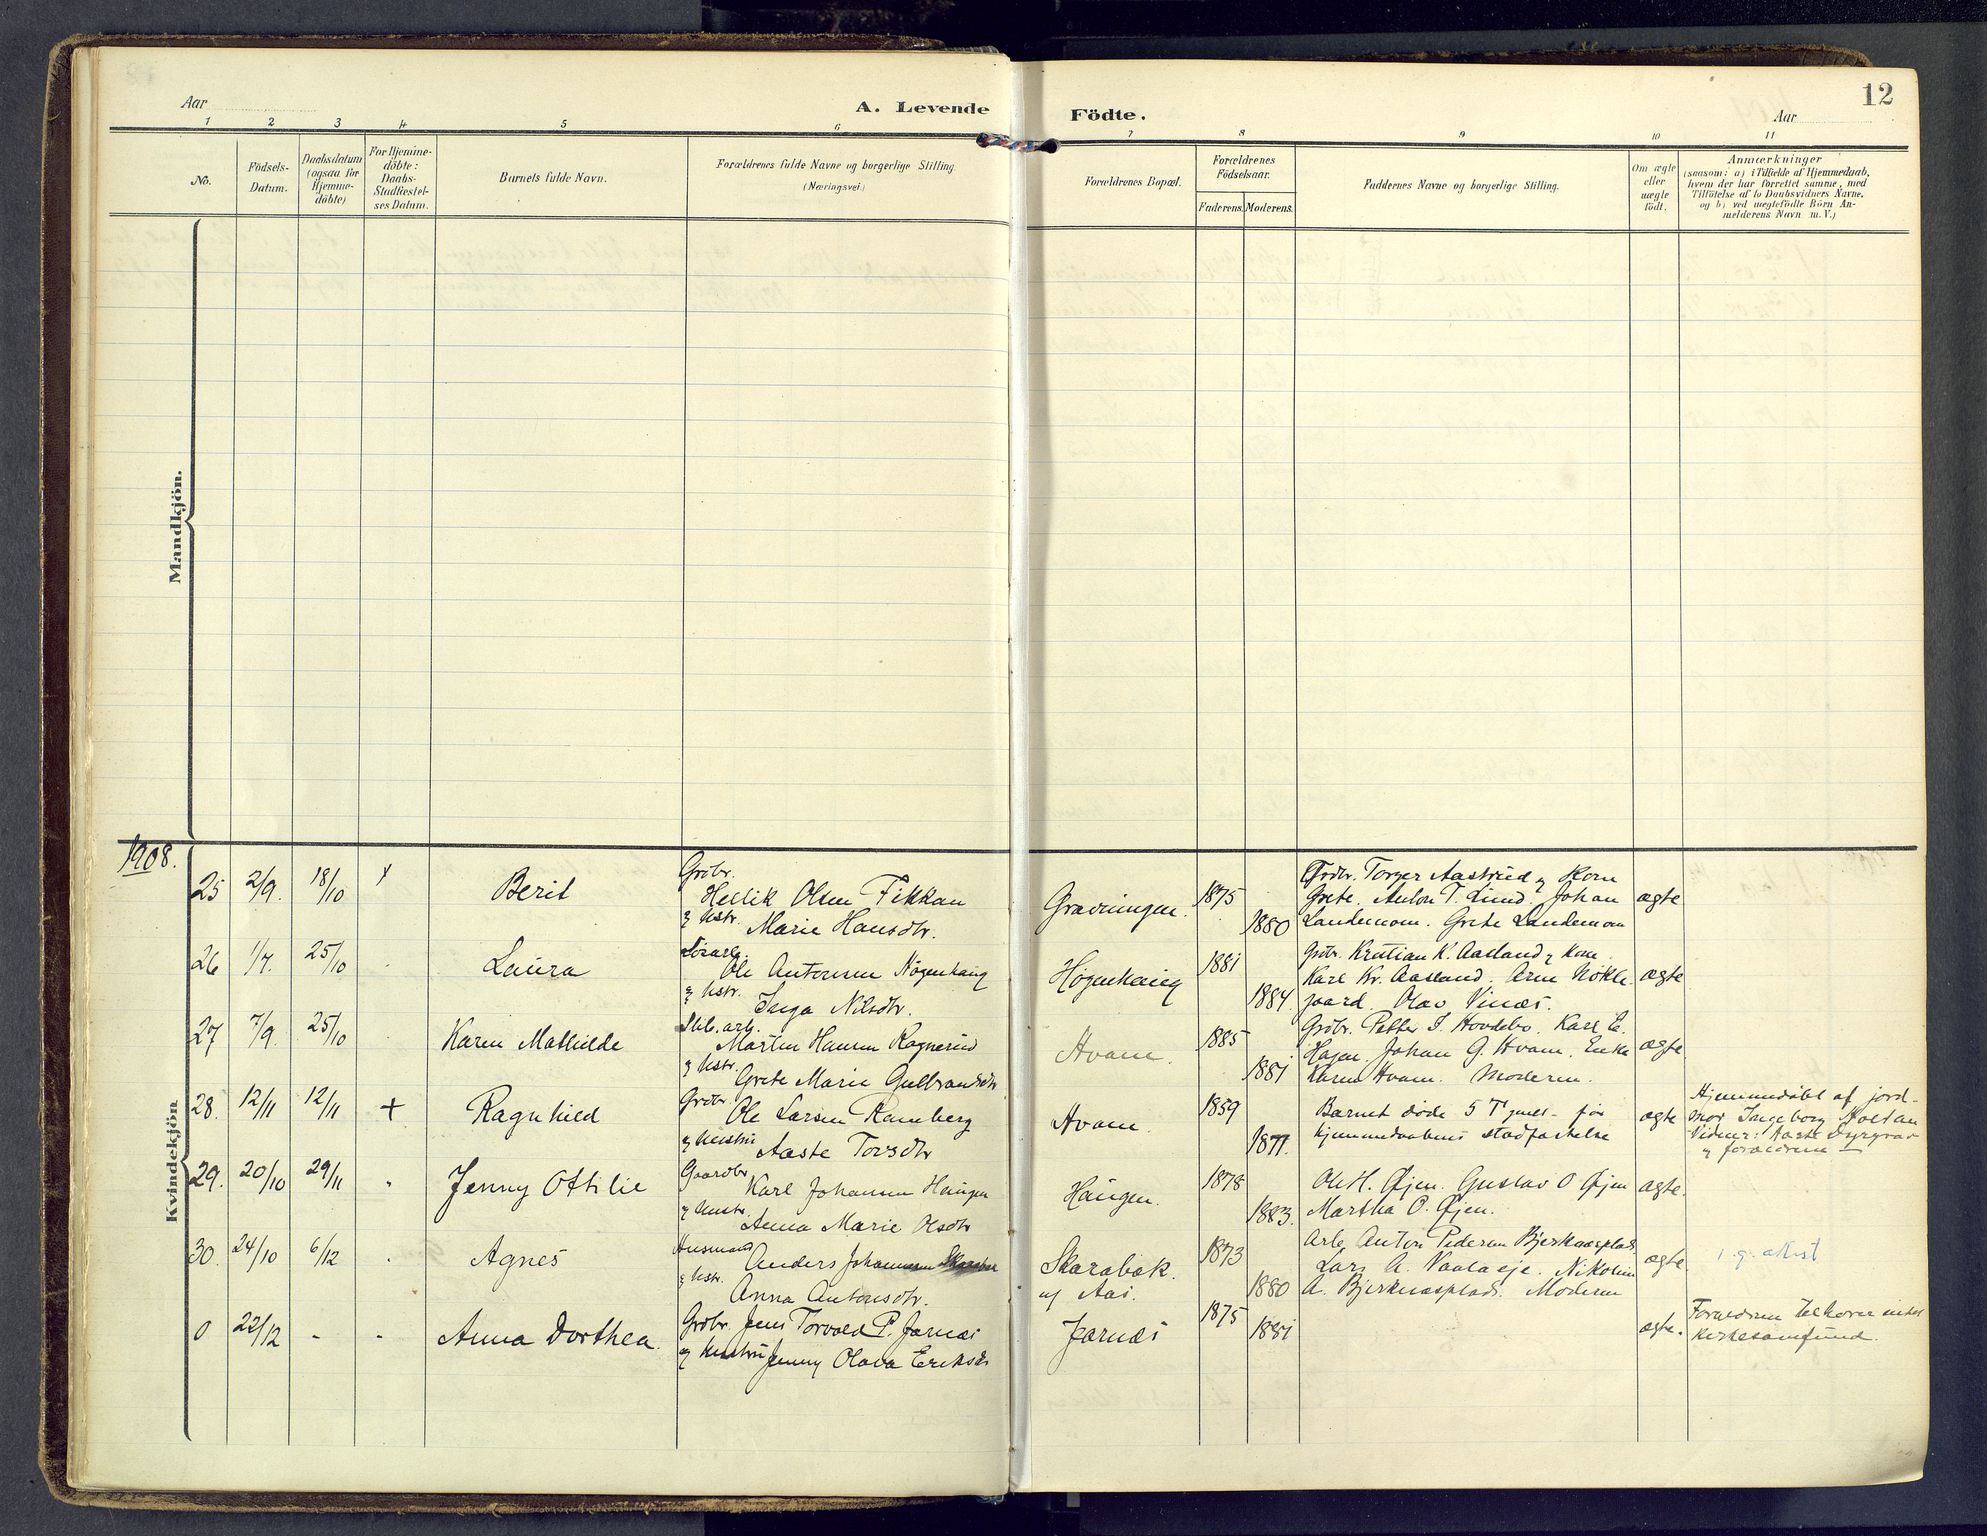 Aar
A. Levende
Födte.
Aar
12
1 2 3 4 5 6 7 8 9 10 11
No.
Födsels-
Datum.
Daabsdatum
(ogsaa for
Hjemme-
döbte)
For Hjemme-
döbte:
Daabs-
Stadfæstel-
ses Datum.
Barnets fulde Navn.
Forældrenes fulde Navne og borgerlige Stilling.
(Næringsvei.)
Forældrenes Bopæl.
Forældrenes
Födselsaar.
Faderens. Moderens.
Faddernes Navne og borgerlige Stilling.
Om ægte
eller
uægte
födt.
Anmærkninger
(saasom: a) i Tilfælde af Hjemmedaab,
hvem der har forrettet samme, med
Tilföielse af to Daabsvidners Navne.
og b) ved uægtefödte Börn An-
melderens Navn m. V.)
Mandkjön.
Kvindekjön
1908.
25 2/9. 18/10 + Berit
Grdbr.
Hellik Olsen Fikkan
og Hstr.
Marie Hansdtr.
Gravningen. 1875 1880
Grdbr. Torger Aastrud og Kone
Grete. Anton T. Lind. Johan
Landemoen. Grete Landemoen
ægte
26 1/7. 25/10 Laura
Løsarb.
Ole Antonsen Högenhaug
og Hstr.
Inga Nilsdtr.
Högenhaug 1881 1884
Grdbr. Kristian K. Aasland og Kone.
Karl Kr. Aasland. Arne Nokle-
gaard. Olav Vinæs.
ægte
27 7/9. 25/10 Karen Mathilde
Slib. arb.
Martin Hansen Ragnerud
og Hstr.
Grete Marie Gulbrandsdtr
Hvam. 1885 1881
Grdbr. Petter I. Hovdebo. Karl E.
Hagen. Johan G. Hvam. Enke
Karen Hvam. Moderen.
ægte
28. 12/11 12/11 + Ragnhild
Grdbr.
Ole Larsen Ramberg
og Hustru
Aaste Torsdtr
Hvam. 1859 1877.
Barnet døde 5 Timer før
hjemmedaabens stadfæstelse
ægte
Hjemmedøbt af jord-
mor Ingeborg Holtan
Vidner: Aaste Dyrgrav
og forældrene
29. 20/10 29/11 Jenny Ottilie
Gaardbr.
Karl Johansen Haugen
og Hustr.
Anna Marie Olsdtr
Haugen. 1878 1883.
Ole H. Øjen. Gustav O Øjen
Martha O. Øjen.
ægte.
30. 24/10 6/12 Agnes
Husmand
Anders Johannesen
og Hstr.
Anna Antonsdtr.
Skarabæk.
af Aas. 1873 1880
Arb. Anton Pedersen Bjerknæsplads.
Lars A. Vaalaeje. Nikoline
A. Bjerknæsplads. Moderen
ægte.
0 22/12 - - Anna Dorthea.
Grdbr. Jens Torvald P. Jarnæs
og Hustru Jenny Olava Eriksdtr
Jarnæs 1875 1881
ægte.
Forældrene tilhører intet
kirkesamfund.